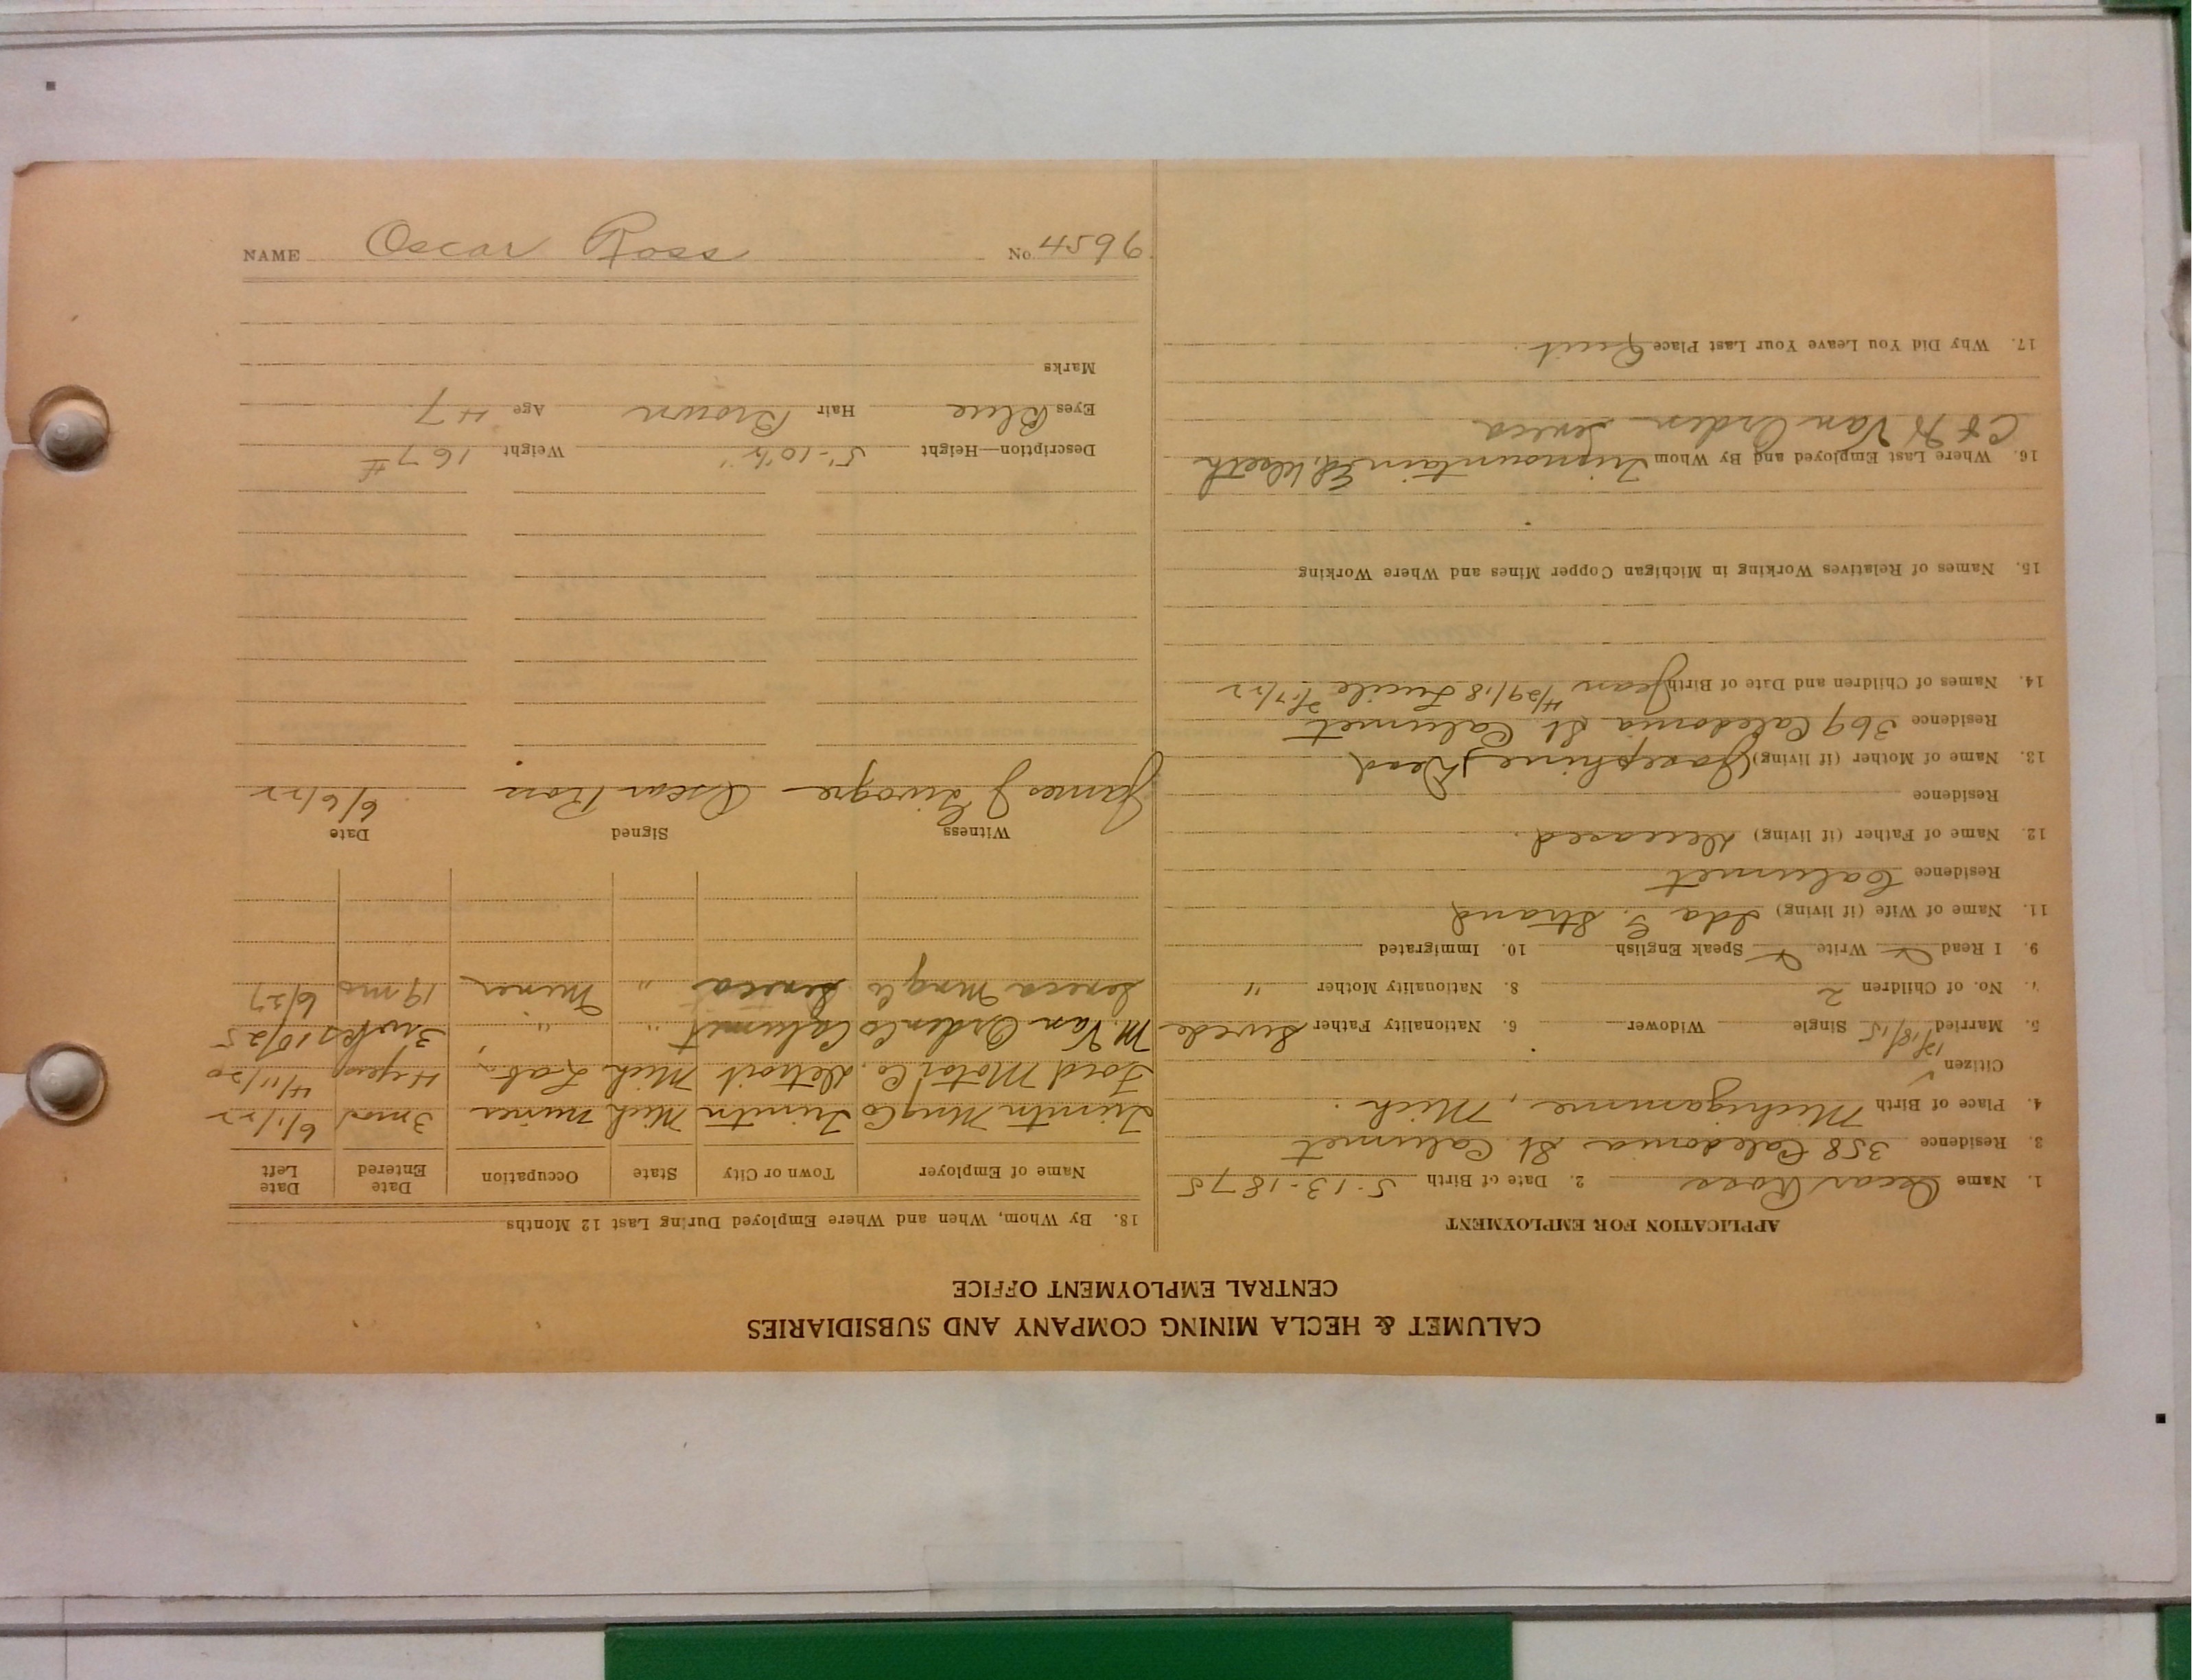 CALUMET & HECLA MINING COMPANY AND SUBSIDIARIES
CENTRAL EMPLOYMENT OFFICE
APPLICATION FOR EMPLOYMENT
1. Name Oscar Ross 2. Date of Birth 5-13-1875
3. Residence 358 Caledonia St. Calumet
4. Place of Birth Michigamme, Mich.
Citizen ✓
5. Married 12/18/15 Single Widower 6. Nationality Father Swede
7. No. of Children 2 8. Nationality Mother "
9. I Read Write Speak English 10. Immigrated
11. Name of Wife (if living) Ida E. Strand
Residence Calumet
12. Name of Father (if living) Deceased.
Residence
13. Name of Mother (if living) (Josephine) Dead
Residence 369 Caledonia St. Calumet
14. Names of Children and Date of Birth Jean 4/29/18 Lucile
15. Names of Relatives Working in Michigan Copper Mines and Where Working
16. Where Last Employed and By Whom Trimountain Ed.
C & H Van Orden Seneca
17. Why Did You Leave Your Last Place Quit.
18. By Whom, When and Where Employed During Last 12 Months
Name of Employer Town or City State Occupation Date Entered Date Left
Trimtn Mng Co Trimtn Mich Miner 3 mos 6/1/22
Ford Motor Co. Detroit Mich Lab. 4 years 4/11/20
M. Van Orden Co Calumet " " 3 wks 10/25
Seneca Mng Co Seneca " Miner 19 mo 6/27
Witness Signed Date
James J Oscar Ross 6/6/22
Description—Height 5'-10½" Weight 167 #
Eyes Blue Hair Brown Age 47
Marks
NAME Oscar Ross No. 4596